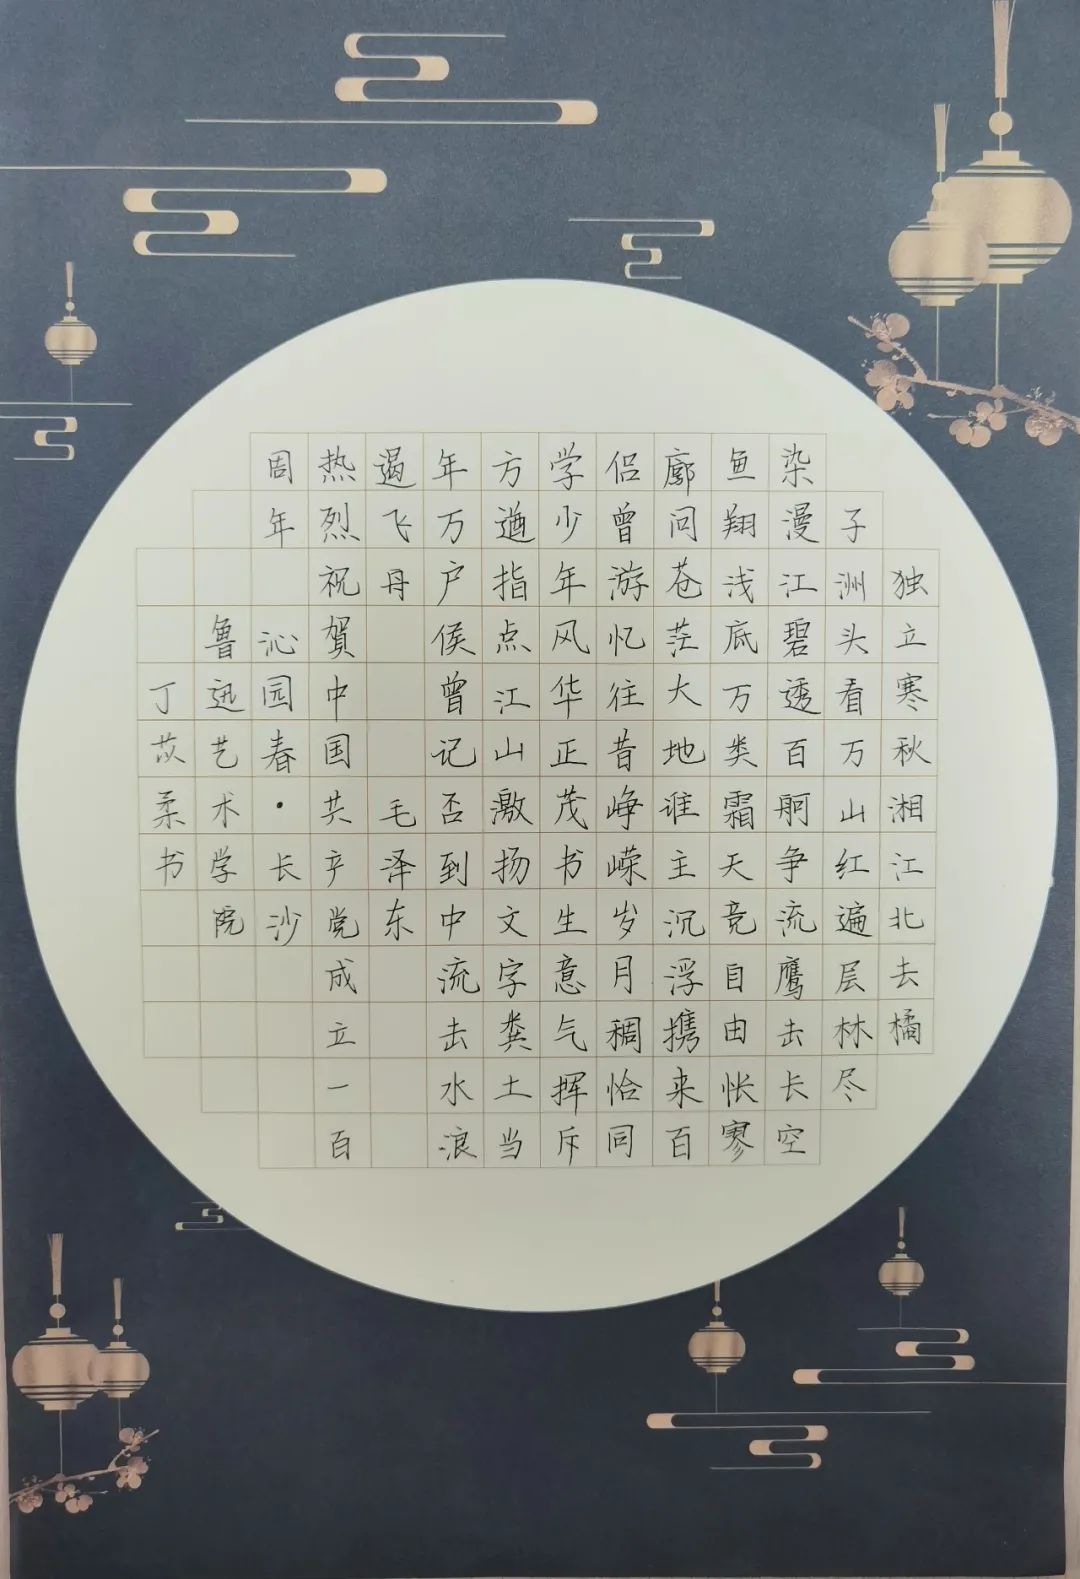 独立寒秋湘江北去橘
子洲头看万山红遍层林尽
染漫江碧透百舸争流鹰击长空
鱼翔浅底万类霜天竞自由怅寥
廓问苍茫大地谁主沉浮携来百
侣曾游忆往昔峥嵘岁月稠恰同
学少年风华正茂书生意气挥斥
方遒指点江山激扬文字粪土当
年万户侯曾记否到中流击水浪
遏飞舟 毛泽东
热烈祝贺中国共产党成立一百
周年 沁园春·长沙
鲁迅艺术学院
丁苡柔书